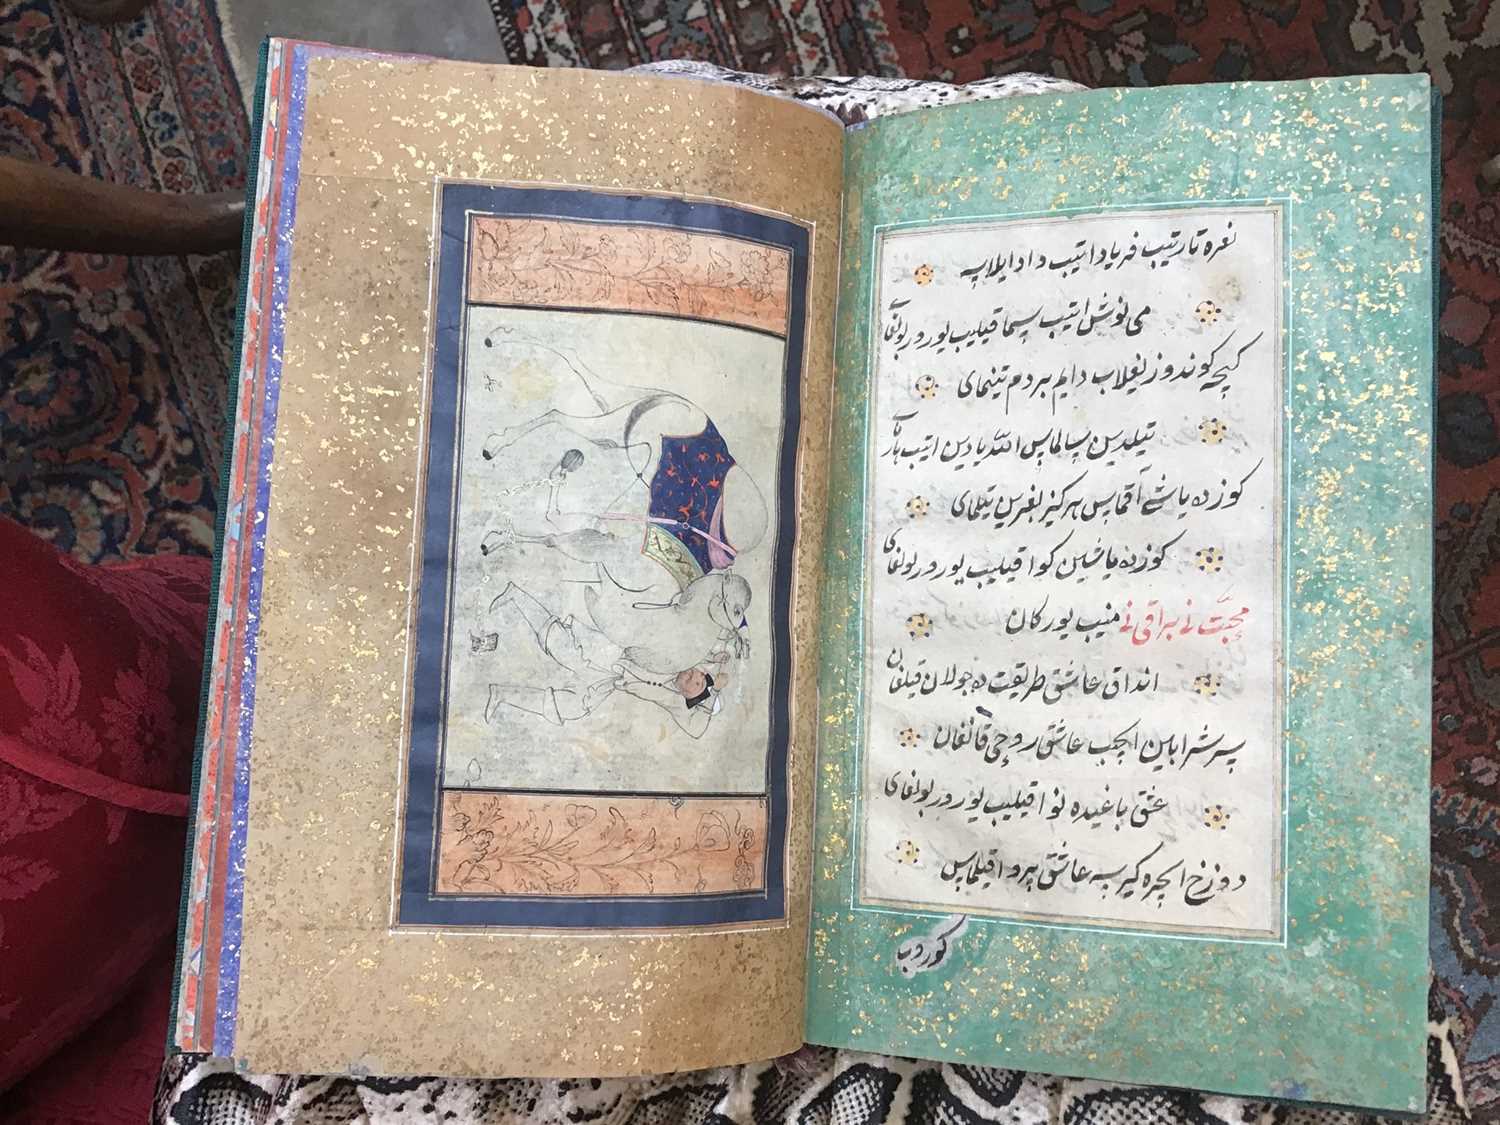 نعره تارتیب فریاد ایتیب داد ایلایه
می نوش ایتیب سما قیلیب یورور بولغای
کیچه کوندوز ییغلاب دایم بردم تینمای
تیلدین سالماس الله یادین ایتیب های
کوزده یاشی آقماس هرکیز بغرین تیلمای
کوزده یاشین کوا قیلیب یورور بولغای
محبت نی براقی نی منیب یورکان
انداق عاشق طریقت ده جولان قیلغان
پیر شرابین ایچیب عاشق روحی قانغان
عشق باغیده نوا قیلیب یورور بولغای
دوزخ ایچره کیرسه عاشق پروا قیلماس
کوروب